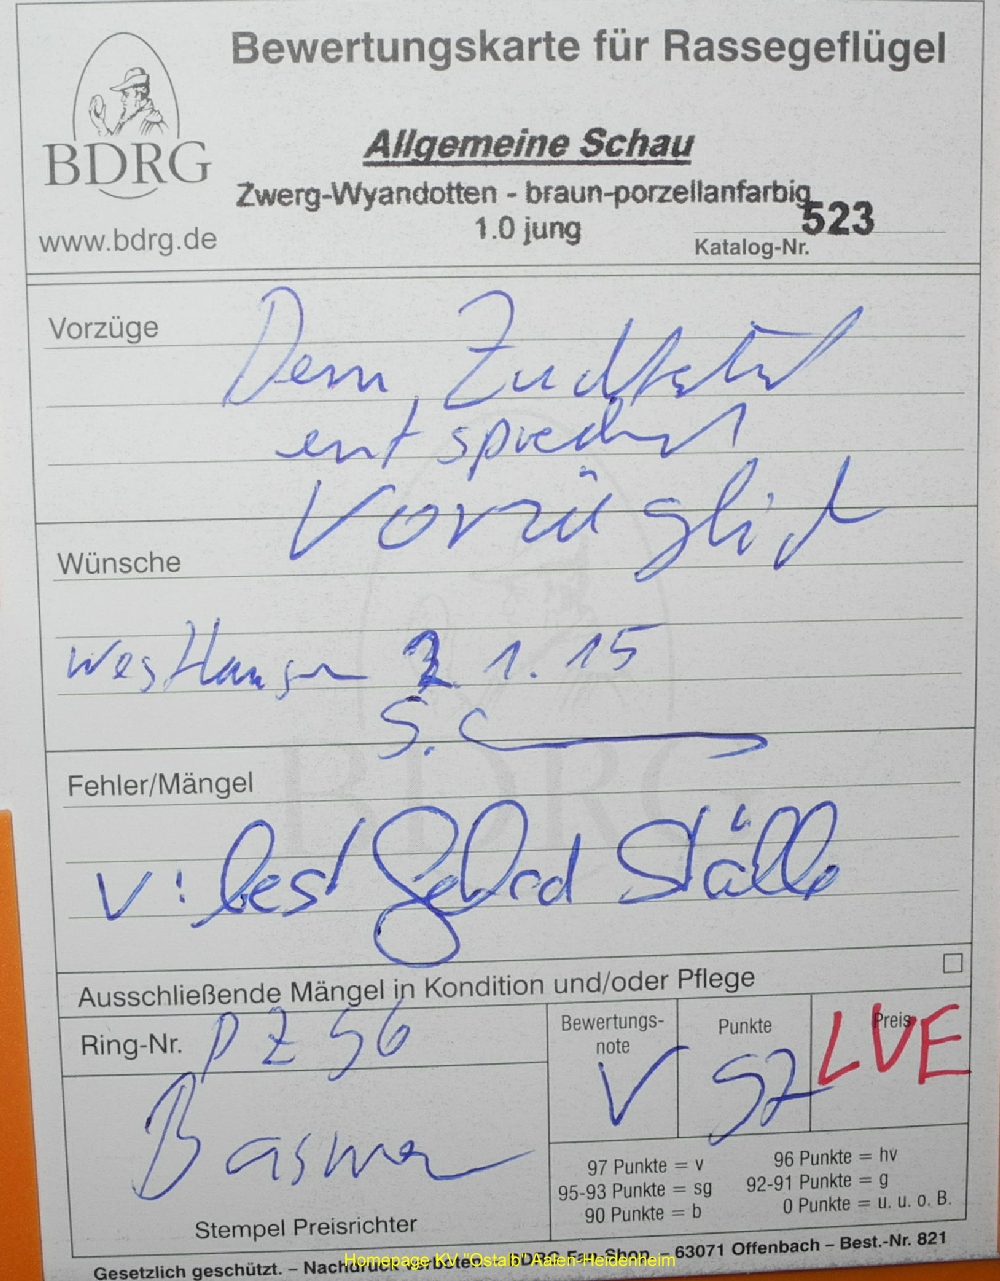 Bewertungskarte für Rassegeflügel
BDRG
www.bdrg.de
Allgemeine Schau
Zwerg-Wyandotten - braun-porzellanfarbig
1.0 jung
523
Katalog-Nr.
Vorzüge
Dem
entspricht
Vorzüglich
Wünsche
Westhausen 2 1. 15
S. C
BDRG
Fehler/Mängel
V: best Ställe
Ausschließende Mängel in Kondition und/oder Pflege
Ring-Nr. PZ 56
Bewertungs-
note
V
Punkte
97
Preis
LVE
97 Punkte = v
96 Punkte = hv
95-93 Punkte = sg
92-91 Punkte = g
90 Punkte = b
0 Punkte = u. u. o. B.
Stempel Preisrichter
Gesetzlich geschützt. – Nachdruck verboten. BDRG Fan-Shop – 63071 Offenbach – Best.-Nr. 821
Homepage KV "Ostalb" Aalen-Heidenheim